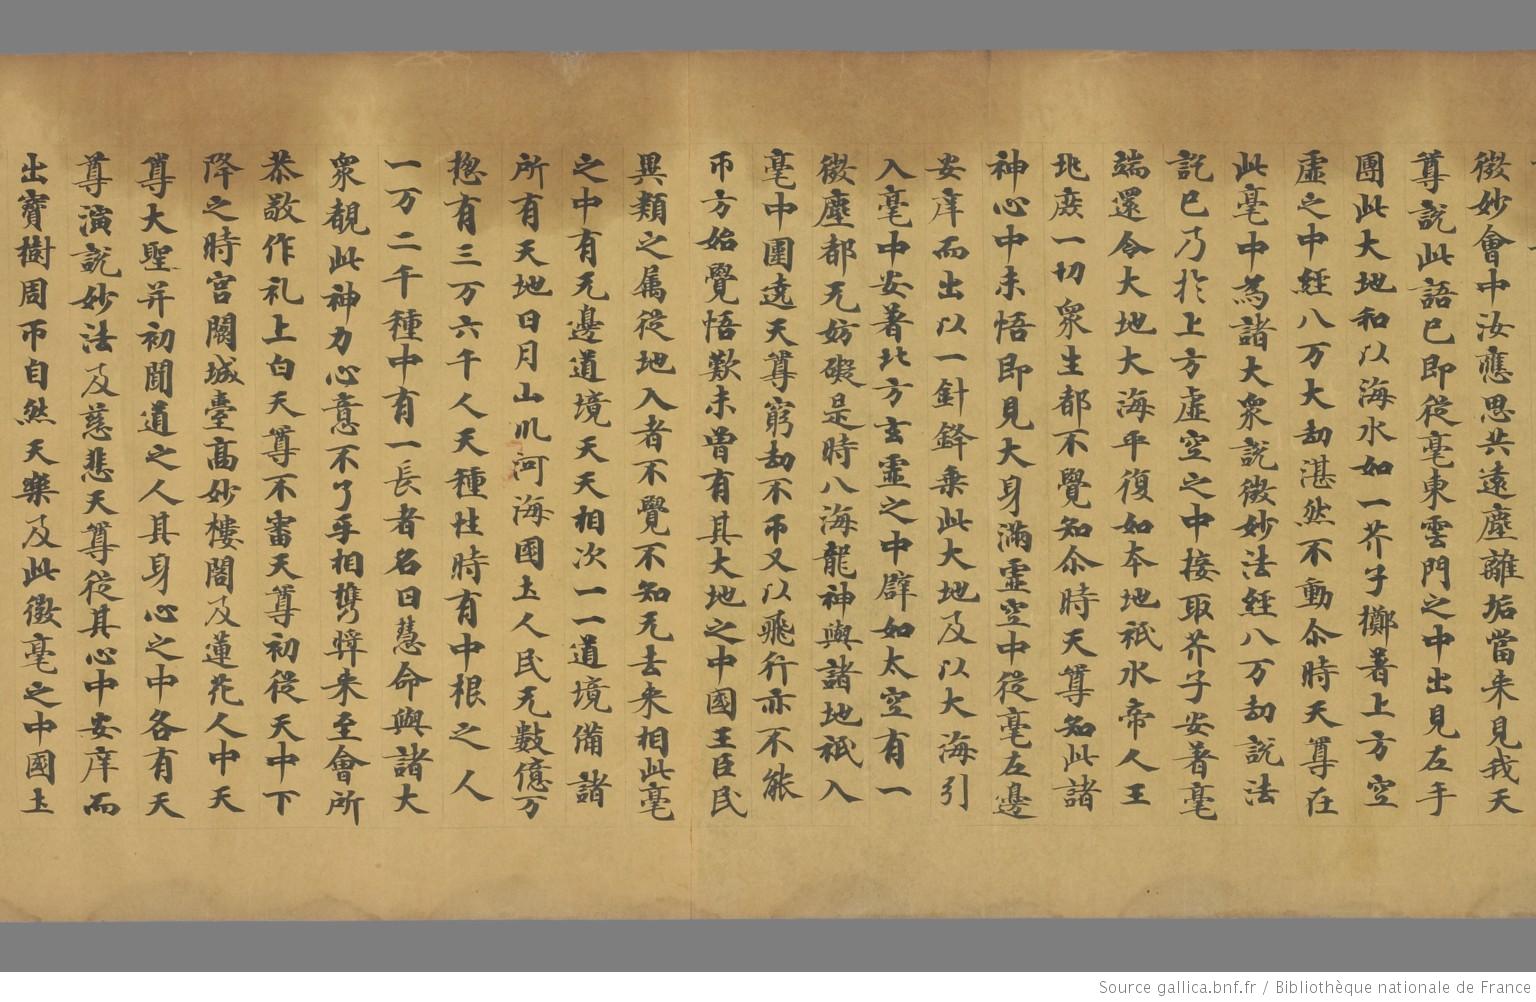 微妙會中汝應思共遠塵離垢當来見我天
尊説此語已即従毫東雲門之中出見左手
團此大地和以海水如一芥子擲著上方空
虛之中經八万大劫湛然不動尒時天尊在
此毫中為諸大衆説微妙法經八万劫説法
訖已乃於上方虛空之中接取芥子安著毫
端還令大地大海平復如本地祇水帝人王
兆庶一切衆生都不覺知尒時天尊知此諸
神心中未悟即見大身滿虛空中従毫左邊
安庠而出以一針鋒乗此大地及以大海引
入毫中安著北方玄虛之中辟如太空有一
微塵都无妨礙是時八海龍神與諸地祇入
毫中圍遶天尊窮劫不帀又以飛行亦不能
帀方始覺悟歎未曽有其大地之中國王臣民
異類之属従地入者不覺不知无去来相此毫
之中有无邊道境天天相次一一道境備諸
所有天地日月山川河海國土人民无數億万
揔有三万六千人天種性時有中根之人
一万二千種中有一長者名曰慧命與諸大
衆覩此神力心意不了手相携將来至會所
恭敬作礼上白天尊不審天尊初従天中下
降之時宫闕城臺高妙樓閣及蓮花人中天
尊大聖并初聞道之人其身心之中各有天
尊演説妙法及慈悲天尊従其心中安庠而
出寶樹周帀自然天樂及此微毫之中國土
Source gallica.bnf.fr / Bibliothèque nationale de France